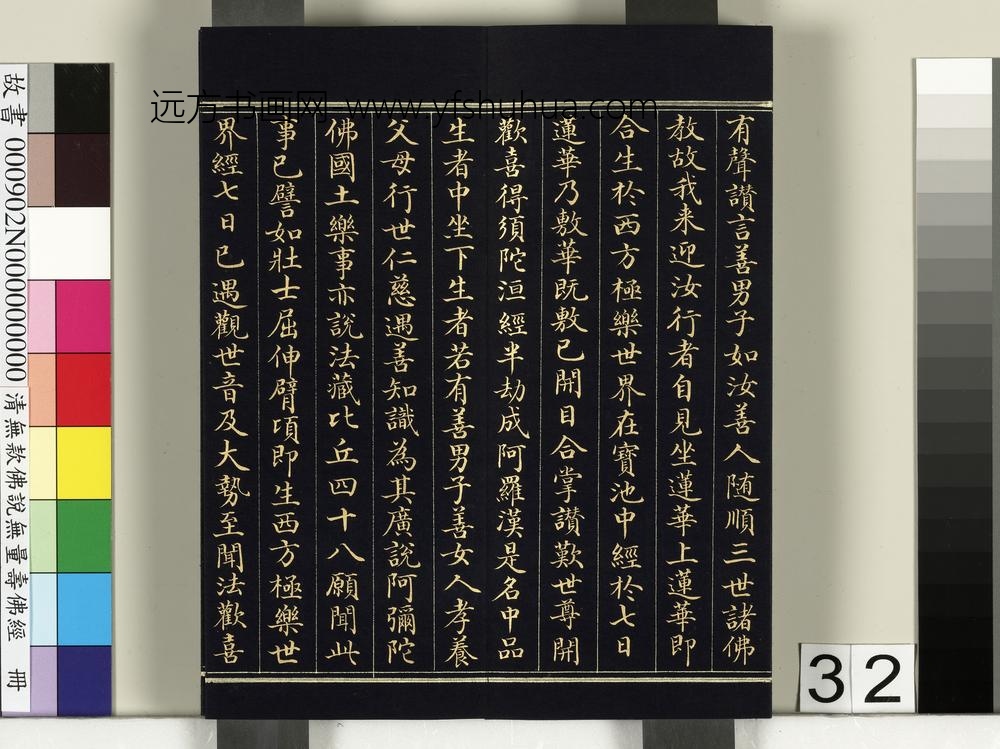 远方书画网 www.yfshuhua.com
有聲讃言善男子如汝善人随順三世諸佛
教故我来迎汝行者自見坐蓮華上蓮華即
合生於西方極樂世界在寶池中經於七日
蓮華乃敷華既敷已開目合掌讃歎世尊開
歡喜得須陀洹經半劫成阿羅漢是名中品
生者中坐下生者若有善男子善女人孝養
父母行世仁慈遇善知識為其廣說阿彌陀
佛國土樂事亦說法藏比丘四十八願聞此
事已譬如壯士屈伸臂項即生西方極樂世
界經七日已遇觀世音及大勢至聞法歡喜
故書 000902N000000000
清無款佛說無量壽佛經 冊
32